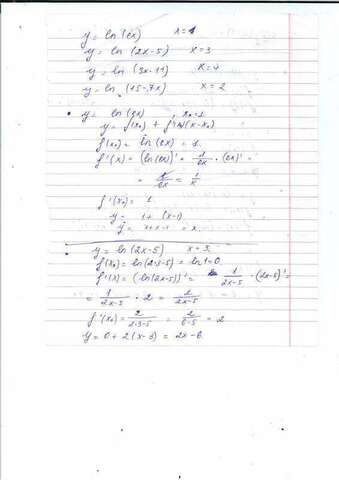 y = ln(ex)    x=1
y = ln (2x-5)    x=3
y = ln (3x-11)    x=4
y = ln (15-7x)    x=2
• y = ln(ex), x₀=1
y = f(x₀) + f'(x₀)(x-x₀)
f(x₀) = ln(ex) = 1.
f'(x) = (ln(ex))' = 1/ex · (ex)' =
= e/ex = 1/x
f'(x₀) = 1
y = 1 + (x-1)
y = 1+x-1 = x.
• y = ln(2x-5)    x=3.
f(x₀) = ln(2·3-5) = ln 1 = 0.
f'(x) = (ln(2x-5))' = 1/2x-5 · (2x-5)' =
= 1/2x-5 · 2 = 2/2x-5
f'(x₀) = 2/2·3-5 = 2/6-5 = 2
y = 0 + 2(x-3) = 2x-6.